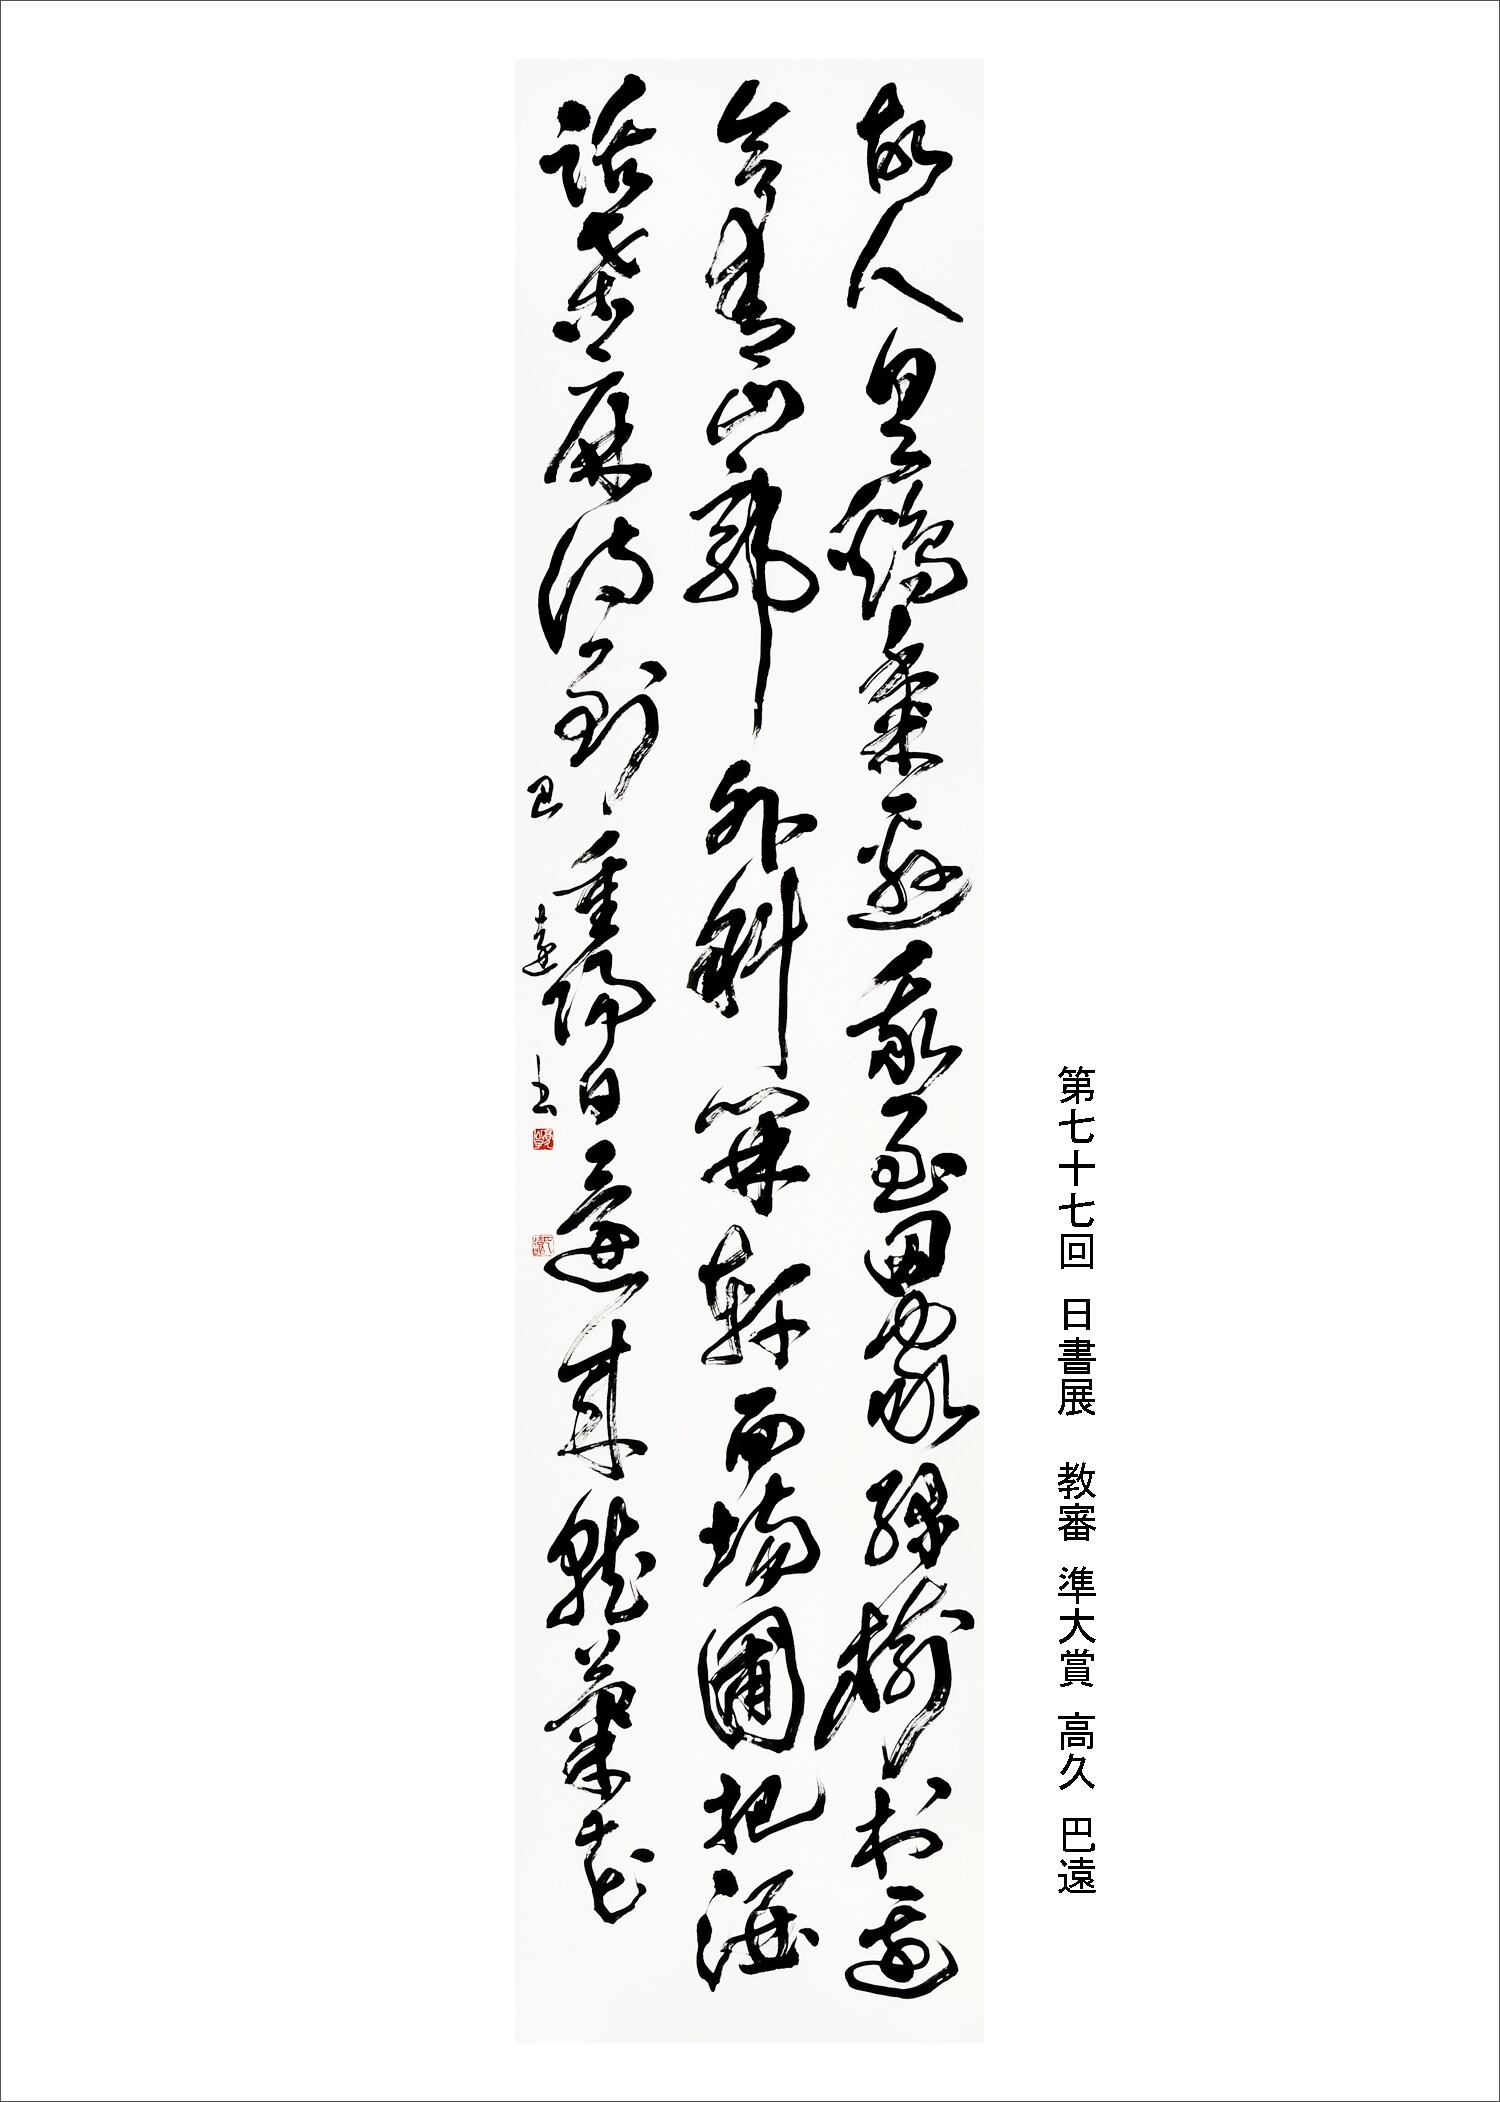 第七十七回 日書展 教審 準大賞 高久 巴遠
故人具鷄黍邀我至田家緑樹村邊
合青山郭外斜開軒面場圃把酒
話桑麻待到重陽日還來就菊花
巴遠書